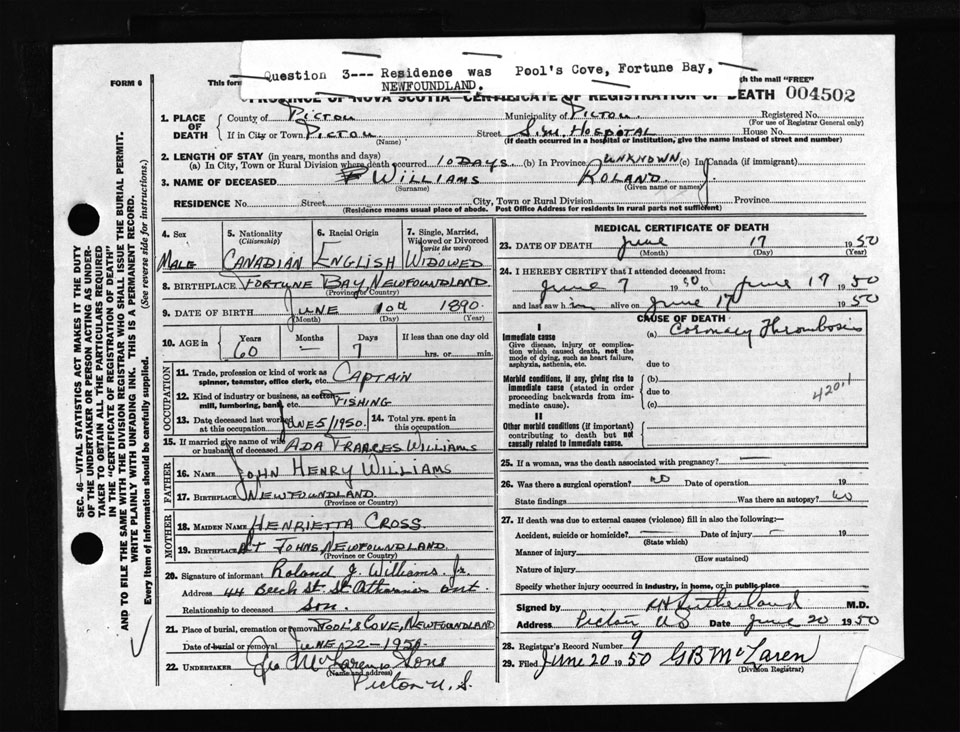 Question 3--- Residence was Pool's Cove, Fortune Bay,
NEWFOUNDLAND.
FORM 6
This for
gh the mail "FREE"
PROVINCE OF NOVA SCOTIA—CERTIFICATE OF REGISTRATION OF DEATH 004502
SEC. 46—VITAL STATISTICS ACT MAKES IT THE DUTY
OF THE UNDERTAKER OR PERSON ACTING AS UNDER-
TAKER TO OBTAIN ALL THE PARTICULARS REQUIRED
IN THE "CERTIFICATE OF REGISTRATION OF DEATH"
AND TO FILE THE SAME WITH THE DIVISION REGISTRAR WHO SHALL ISSUE THE BURIAL PERMIT.
WRITE PLAINLY WITH UNFADING INK. THIS IS A PERMANENT RECORD.
Every Item of Information should be carefully supplied. (See reverse side for instructions.)
1. PLACE OF DEATH
County of PICTOU Municipality of PICTOU Registered No.
(For use of Registrar General only)
If in City or Town PICTOU Street S.M. HOSPITAL House No.
(Name) (If death occurred in hospital or institution, give the name instead of street and number)
2. LENGTH OF STAY (in years, months and days)
(a) In City, Town or Rural Division where death occurred 10 DAYS (b) In Province UNKNOWN (c) In Canada (if immigrant)
3. NAME OF DECEASED WILLIAMS ROLAND J.
(Surname) (Given name or names)
RESIDENCE No. Street City, Town or Rural Division Province
(Residence means usual place of abode. Post Office Address for residents in rural parts not sufficient)
4. Sex MALE
5. Nationality (Citizenship) CANADIAN
6. Racial Origin ENGLISH
7. Single, Married, Widowed or Divorced (write the word) WIDOWED
8. BIRTHPLACE FORTUNE BAY, NEWFOUNDLAND.
(Province or Country)
9. DATE OF BIRTH JUNE 10th 1890.
(Month) (Day) (Year)
10. AGE in Years 60 Months — Days 7 If less than one day old hrs. or min.
OCCUPATION
11. Trade, profession or kind of work as spinner, teamster, office clerk, etc. CAPTAIN
12. Kind of industry or business, as cotton mill, lumbering, bank, etc. FISHING
13. Date deceased last worked at this occupation JUNE 5/1950.
14. Total yrs. spent in this occupation
15. If married give name of wife or husband of deceased ADA FRANCES WILLIAMS
FATHER
16. NAME JOHN HENRY WILLIAMS
17. BIRTHPLACE NEWFOUNDLAND.
(Province or Country)
MOTHER
18. MAIDEN NAME HENRIETTA CROSS.
19. BIRTHPLACE ST JOHNS, NEWFOUNDLAND.
(Province or Country)
20. Signature of informant Roland J. Williams, Jr.
Address 44 Beech St. St. Catharines Ont.
Relationship to deceased Son.
21. Place of burial, cremation or removal POOL'S COVE, NEWFOUNDLAND
Date of burial or removal JUNE 22-1950.
22. UNDERTAKER Geo McLaren & Sons
(Name and address)
Pictou N.S.
MEDICAL CERTIFICATE OF DEATH
23. DATE OF DEATH June 17 1950
(Month) (Day) (Year)
24. I HEREBY CERTIFY that I attended deceased from:
June 7 1950 to June 17 1950
and last saw him alive on June 17 1950
CAUSE OF DEATH
I
Immediate cause (a) Coronary Thrombosis
Give disease, injury or complication which caused death, not the mode of dying, such as heart failure, asphyxia, asthenia, etc.
due to
Morbid conditions, if any, giving rise to immediate cause (stated in order proceeding backwards from immediate cause).
(b)
due to
(c)
420.1
II
Other morbid conditions (if important) contributing to death but not causally related to immediate cause.
25. If a woman, was the death associated with pregnancy? —
26. Was there a surgical operation? no Date of operation 19
State findings Was there an autopsy? no
27. If death was due to external causes (violence) fill in also the following:—
Accident, suicide or homicide? — Date of injury - 19
(State which)
Manner of injury
(How sustained)
Nature of injury
Specify whether injury occurred in industry, in home, or in public place
Signed by Sutherland M.D.
Address Pictou N S Date June 20 1950
28. Registrar's Record Number 9
29. Filed June 20 1950 GB McLaren
(Division Registrar)